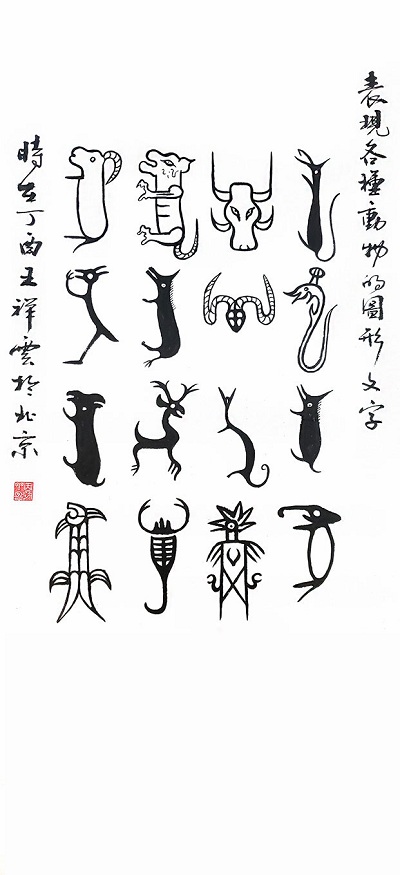 表現各種動物的圖形文字
時在丁酉王祥雲於北京